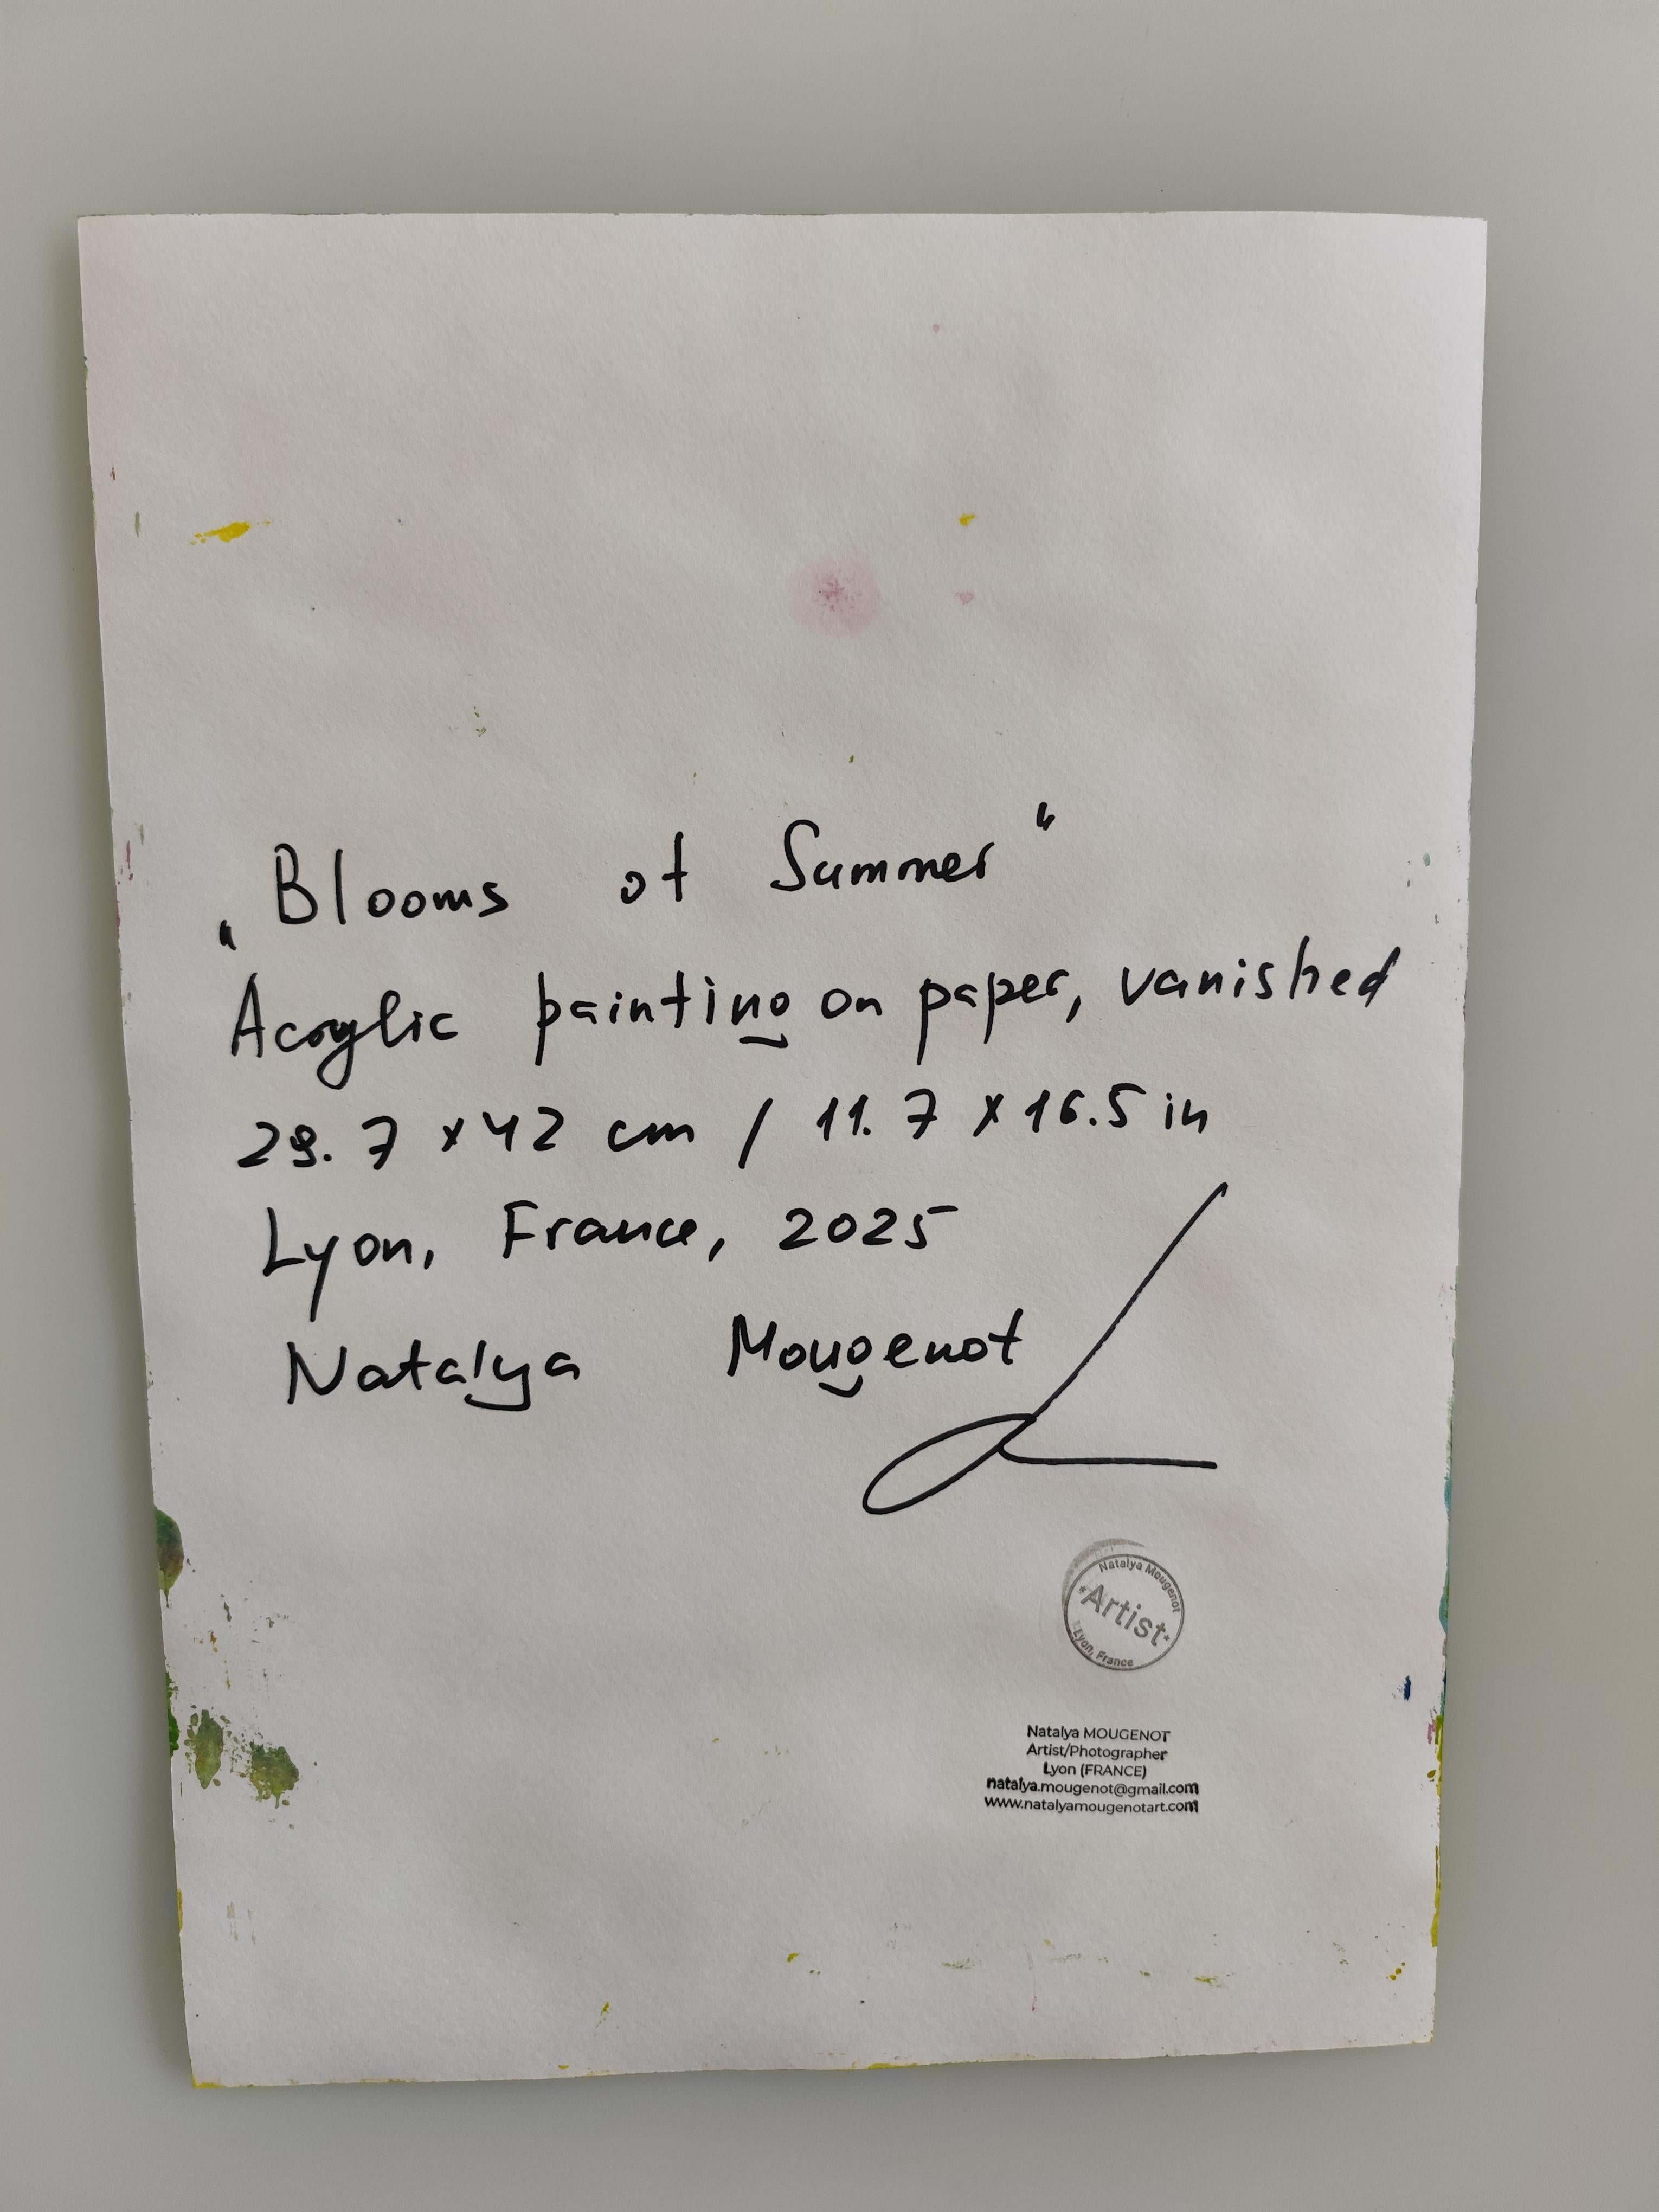 „Blooms of Summer“
Acrylic painting on paper, vanished
29.7 x 42 cm / 11.7 x 16.5 in
Lyon, France, 2025
Natalya Mougenot
Natalya Mougenot
*Artist*
Lyon, France
Natalya MOUGENOT
Artist/Photographer
Lyon (FRANCE)
natalya.mougenot@gmail.com
www.natalyamougenotart.com